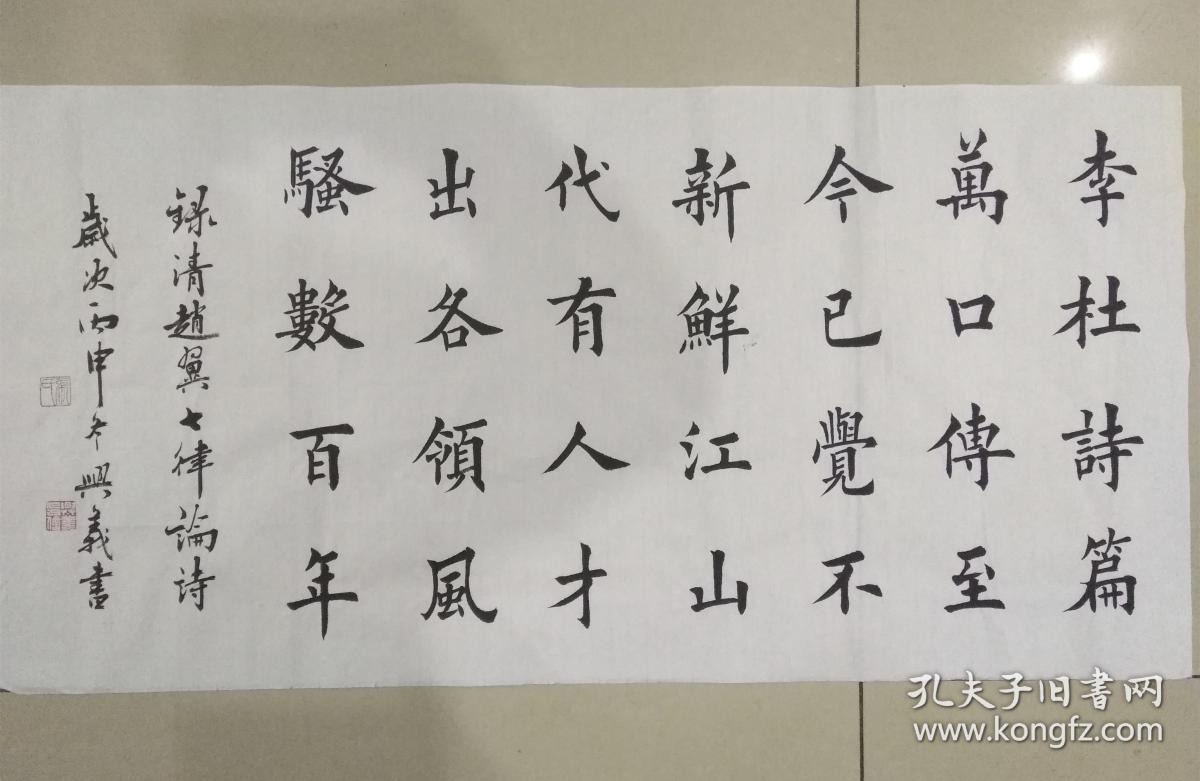 李杜詩篇
萬口傳至
今已覺不
新鮮江山
代有人才
出各領風
騷數百年
録清趙翼七律論詩
歲次丙申冬興義書
孔夫子旧書网
www.kongfz.com